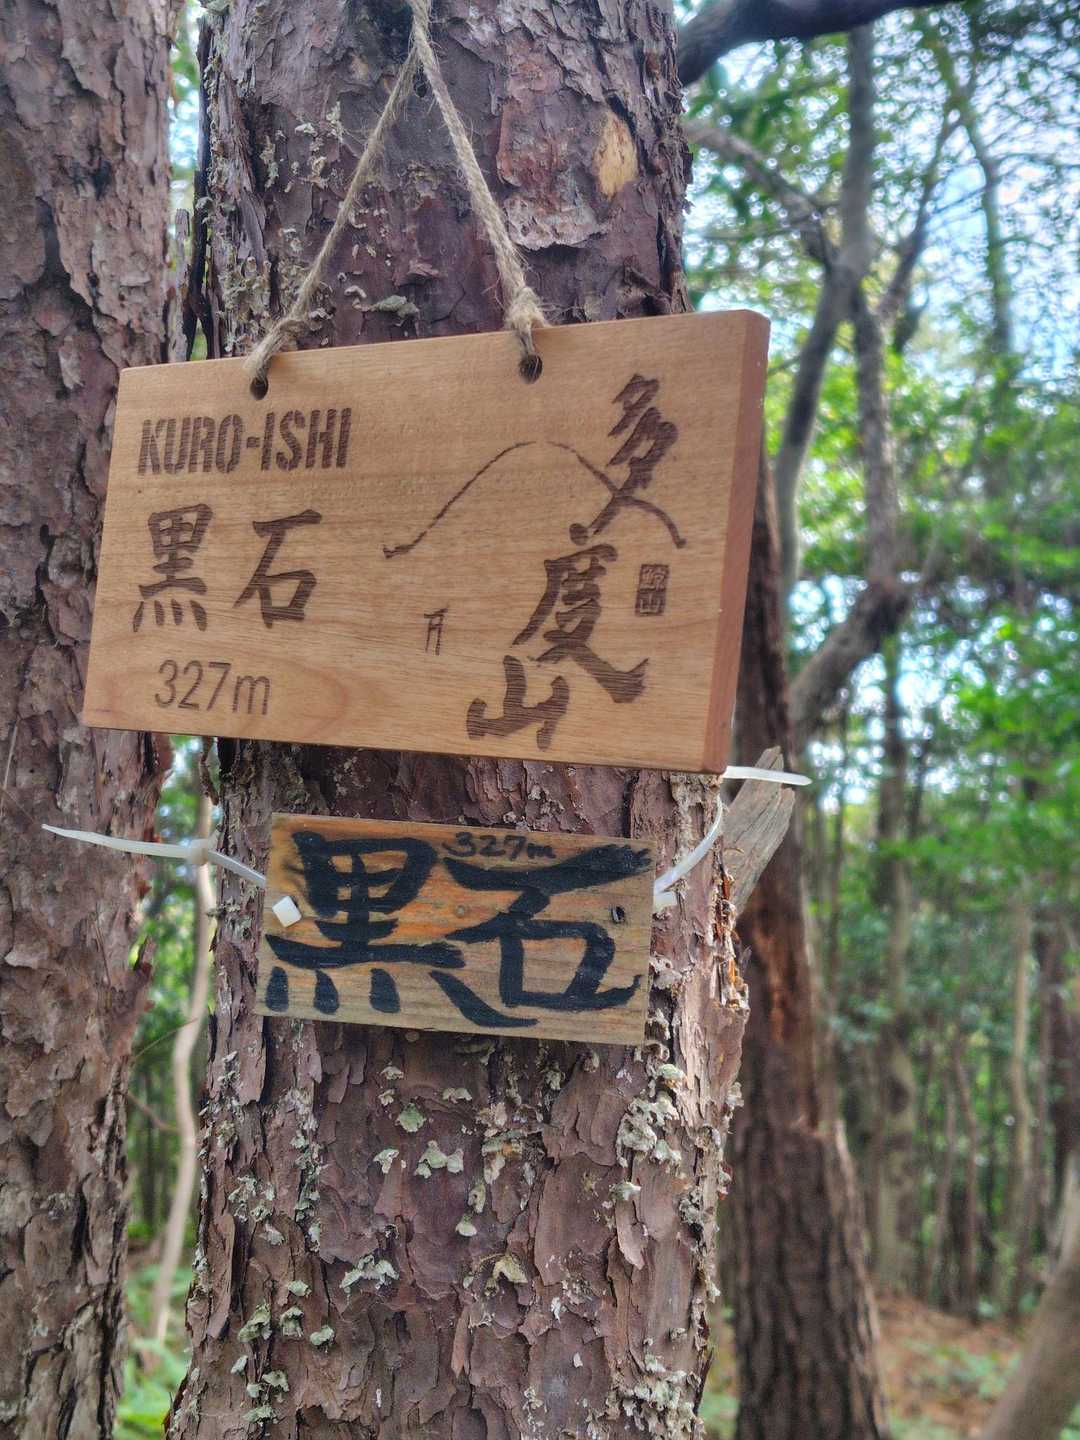 KURO-ISHI
黒石
327m
多度山
327m
黒石